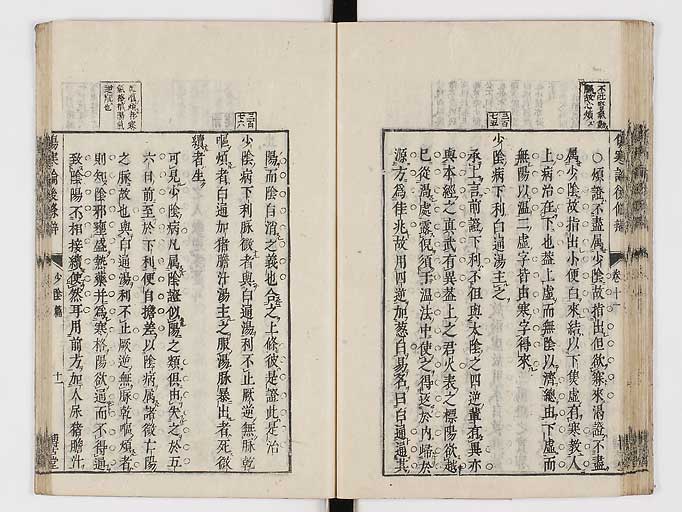 ○煩證不盡屬少陰故指出但欲寐來渴證不盡
屬少陰故指出小便白來結以下焦虛有寒教人
上病治在下也蓋上虛而無陰以濟總由下虛而
無陽以溫二虛字皆由寒字得來
三百七五
少陰病下利白通湯主之
承上言前證下利不但與太陰之四逆輩有異亦
與本經之真武有異蓋上之君火表之標陽欲越
已從濕處露倪須于溫法中使之得返於內歸於
源方為佳兆故用四逆加葱白易名曰白通通其
陽而陰自消之義也合之上條彼是證此是治
三百七六
少陰病下利脈微者與白通湯利不止厥逆無脈乾
嘔煩者白通加猪膽汁湯主之服湯脈暴出者死微
續者生
可見少陰病凡屬陰證似陽之類俱由失之於五
六日前至於下利便自擔差以陰病屬諸微亡陽
之脈故也與白通湯利不止厥逆無脈乾嘔煩者
則知陰邪壅盛熱藥幷為寒格陽欲通而不得通
致陰陽不相接續使然耳用前方加人尿猪膽汁
傷寒論後條辨
少陰篇
十一